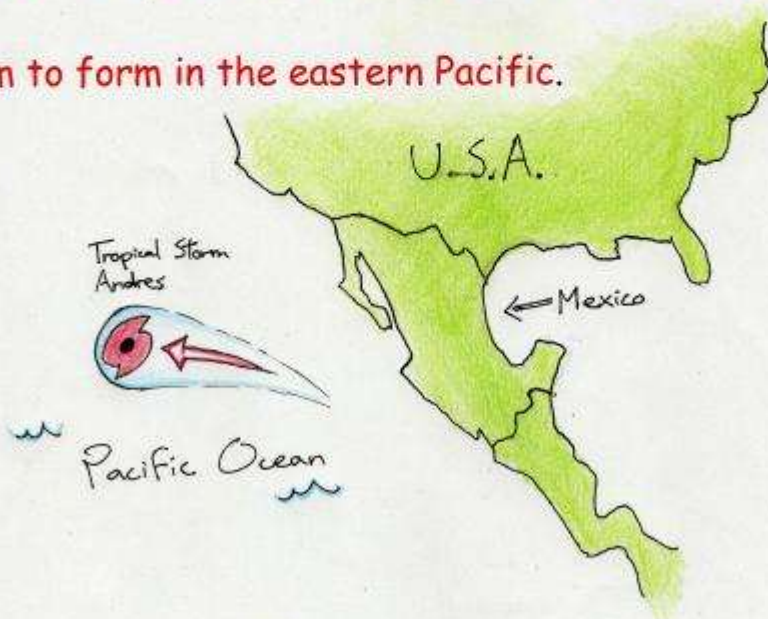 n to form in the eastern Pacific.
U.S.A.
Tropical Storm
Andres
Mexico
Pacific Ocean